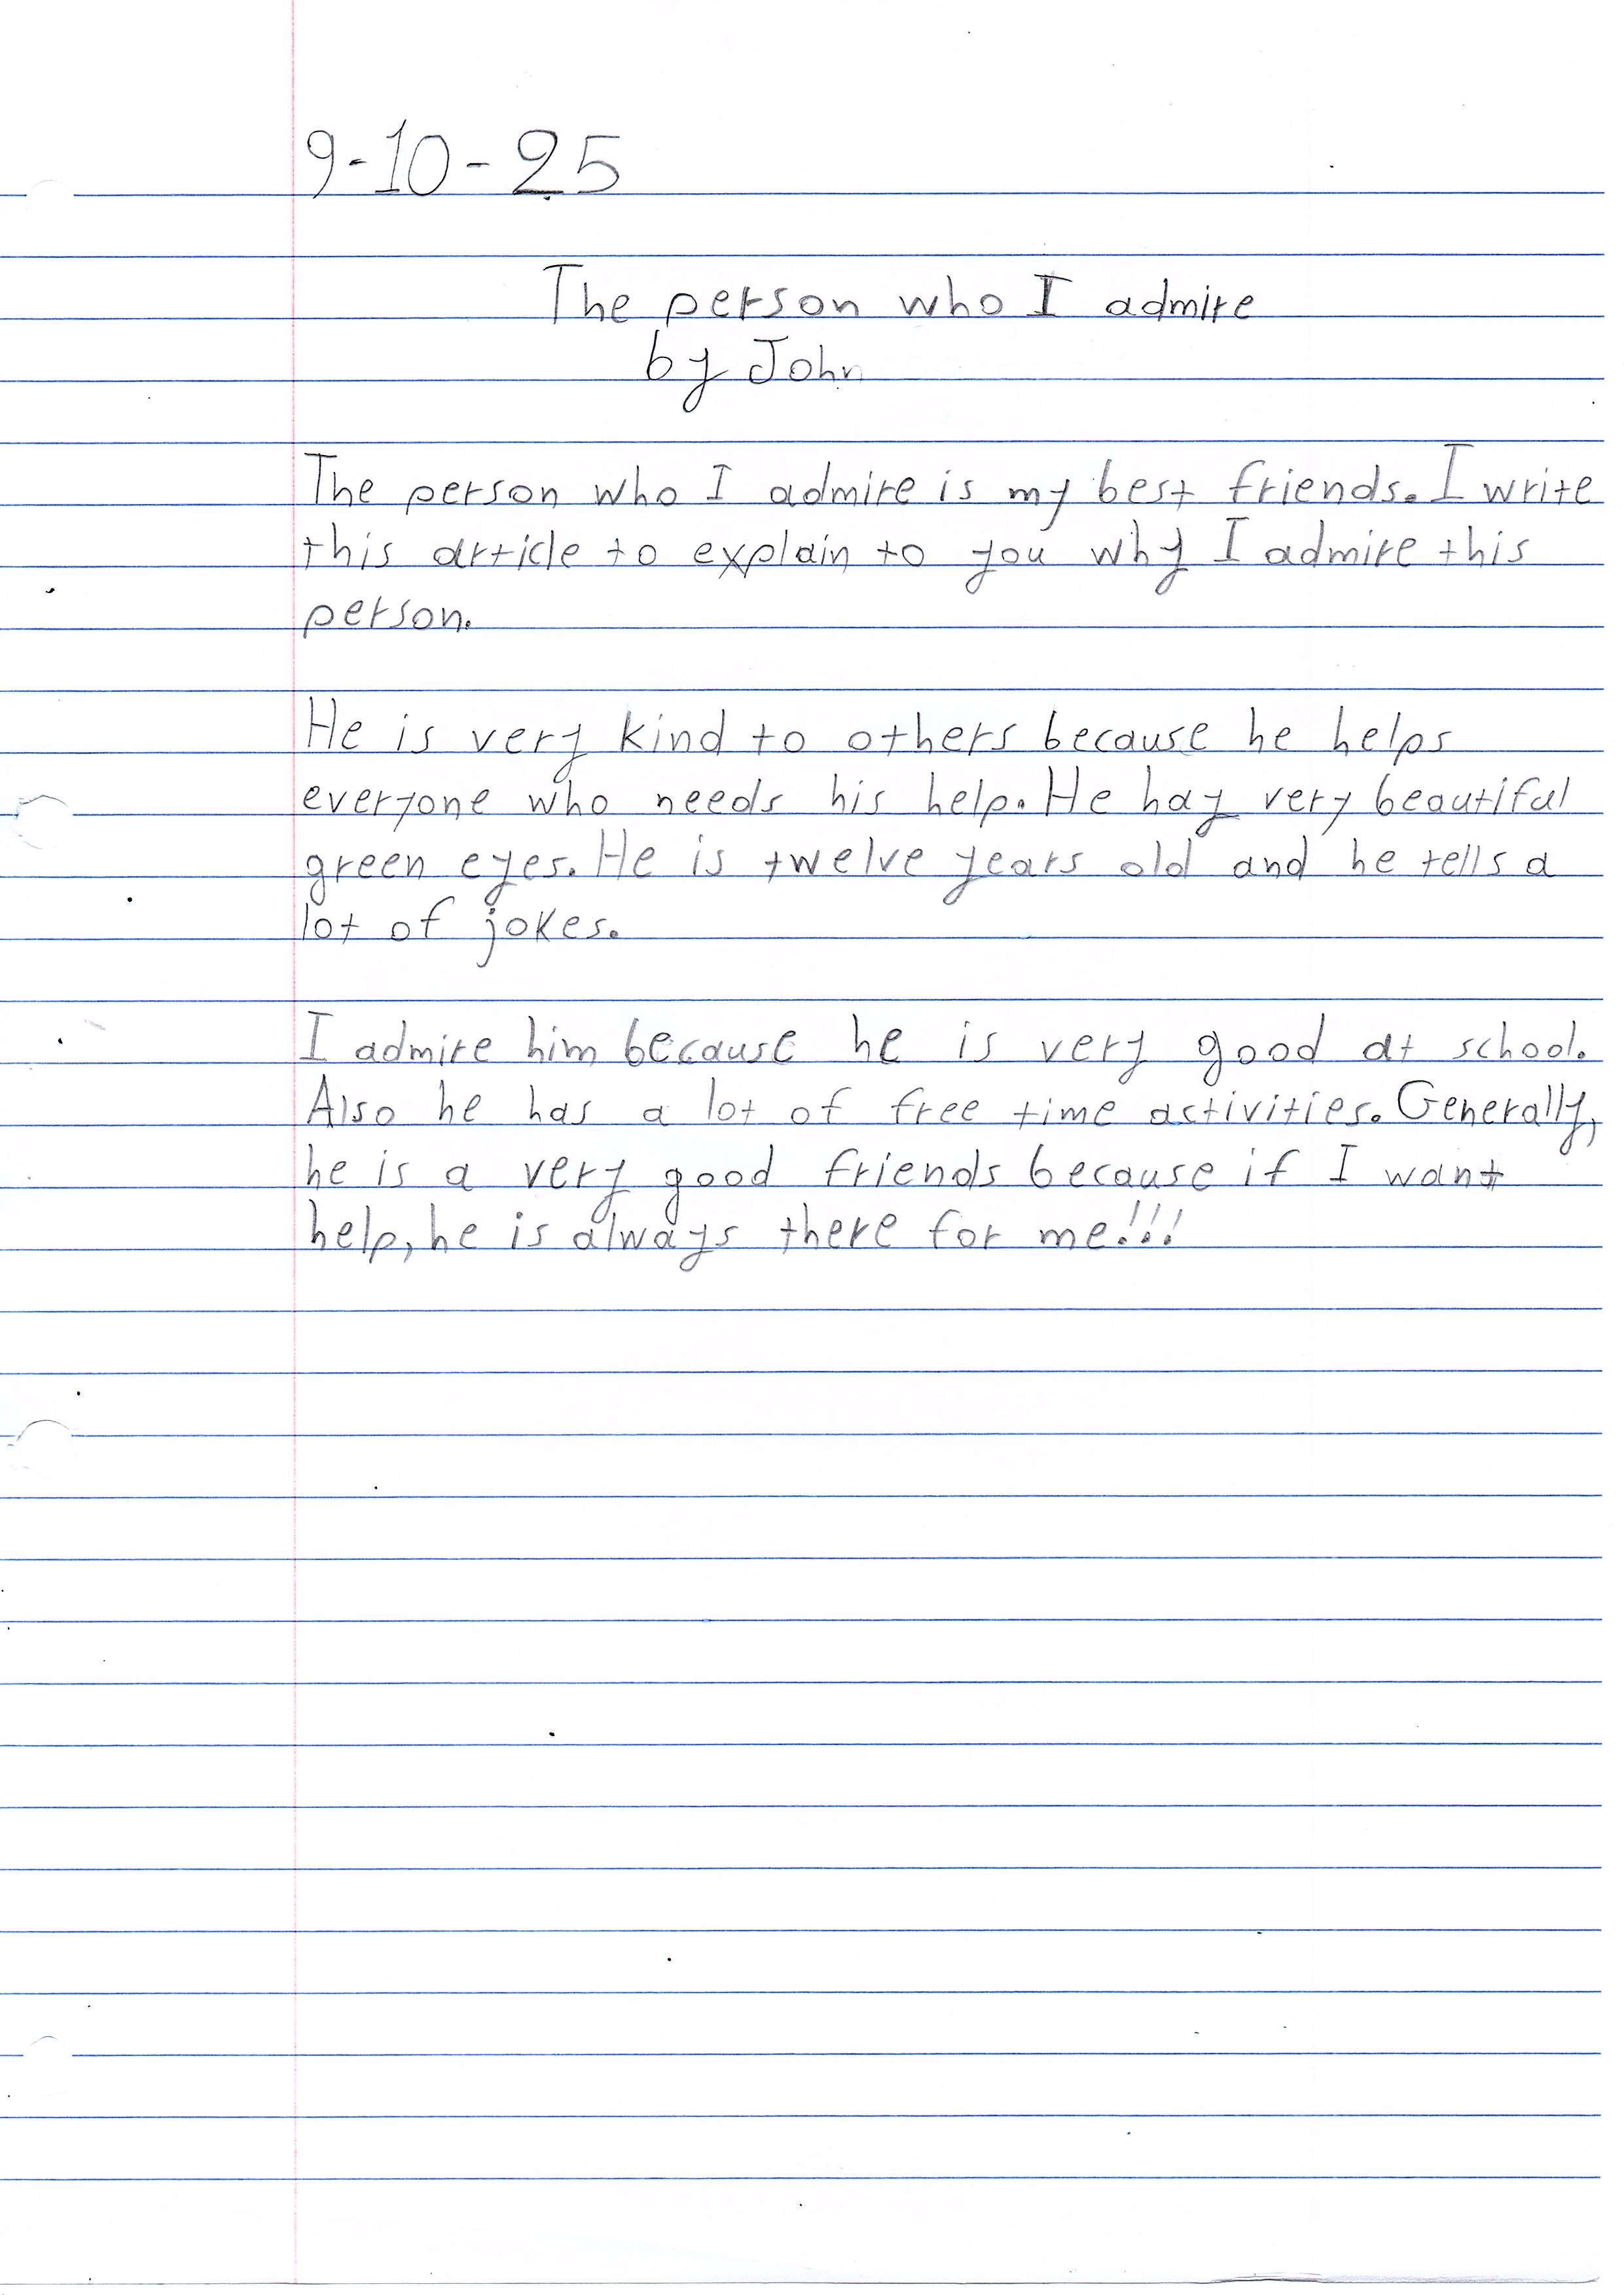 9-10-25
The person who I admire
by John
The person who I admire is my best friends. I write
this article to explain to you why I admire this
person.
He is very kind to others because he helps
everyone who needs his help. He hay very beautiful
green eyes. He is twelve years old and he tells a
lot of jokes.
I admire him because he is very good at school.
Also he has a lot of free time activities. Generally,
he is a very good friends because if I want
help, he is always there for me!!!